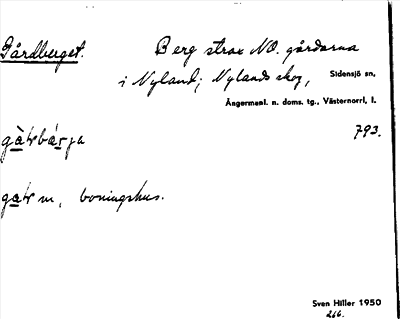 Gårdberget. Berg strax NO. gårdarna
i Nyland; Nylands skog, Sidensjö sn,
Ångermanl. n. doms. tg., Västernorrl. l.
793.
gàʈbárja
gaʈ m, boningshus.
Sven Hiller 1950
266.